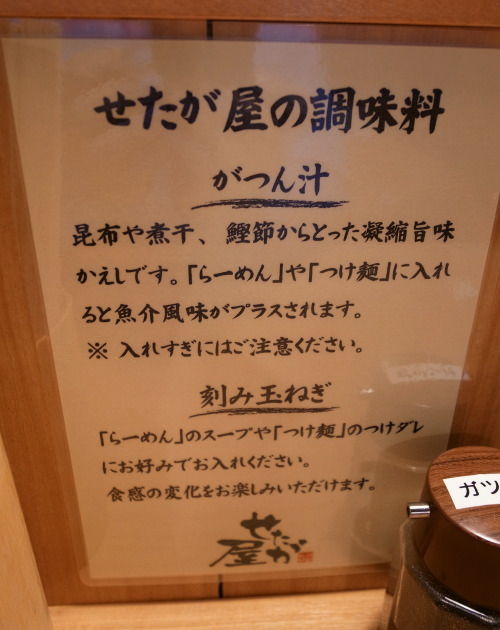 せたが屋の調味料
がつん汁
昆布や煮干、鰹節からとった凝縮旨味
かえしです。「らーめん」や「つけ麺」に入れ
ると魚介風味がプラスされます。
※ 入れすぎにはご注意ください。
刻み玉ねぎ
「らーめん」のスープや「つけ麺」のつけダレ
にお好みでお入れください。
食感の変化をお楽しみいただけます。
せたが
屋
ガツ